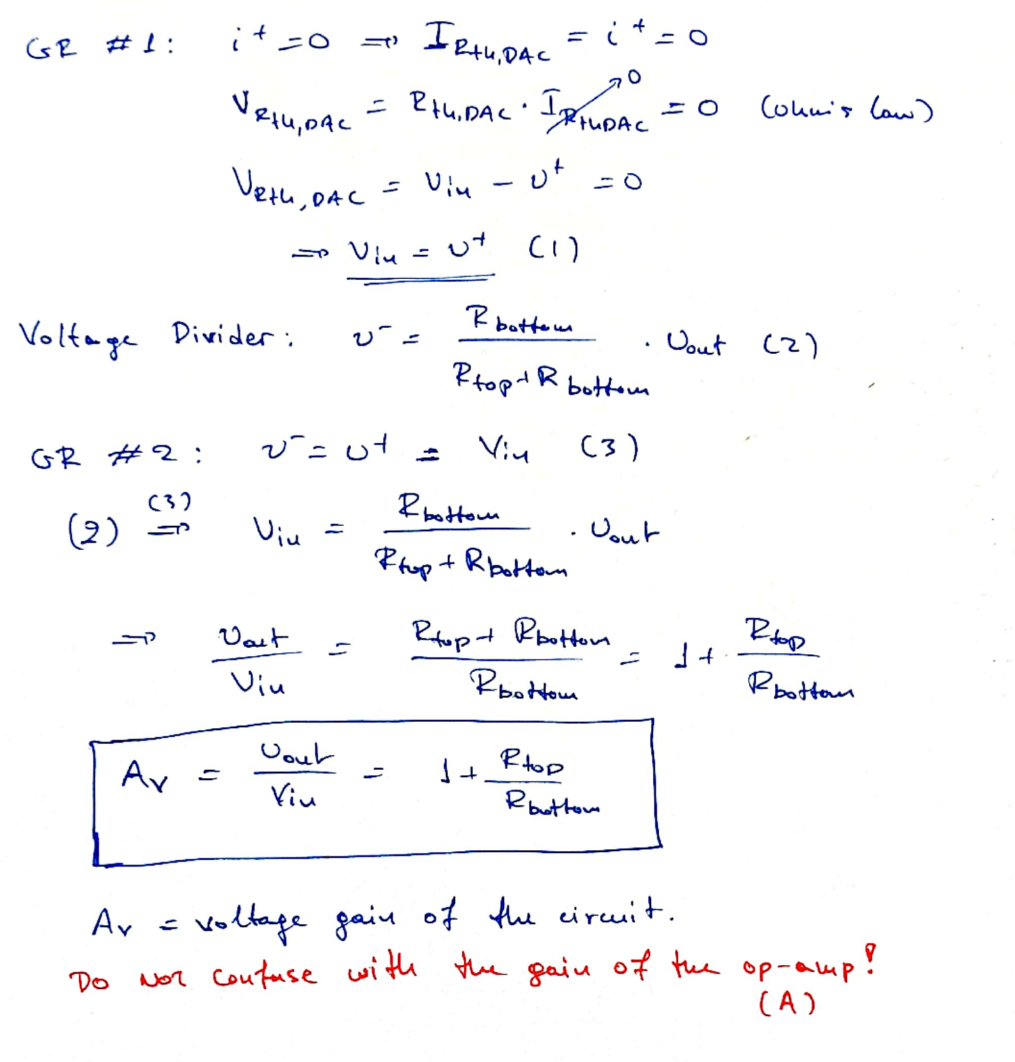 GR #1: i⁺ = 0 ⇒ I_Rth,DAC = i⁺ = 0
V_Rth,DAC = Rth,DAC · I_RthDAC → 0 = 0 (Ohm's law)
V_Rth,DAC = Vin − U⁺ = 0
⇒ Vin = U⁺ (1)
Voltage Divider: U⁻ = Rbottom / (Rtop + Rbottom) · Uout (2)
GR #2: U⁻ = U⁺ = Vin (3)
(2) (3)⇒ Vin = Rbottom / (Rtop + Rbottom) · Uout
⇒ Vout / Vin = (Rtop + Rbottom) / Rbottom = 1 + Rtop / Rbottom
Av = Uout / Vin = 1 + Rtop / Rbottom
Av = voltage gain of the circuit.
Do not confuse with the gain of the op-amp!
(A)